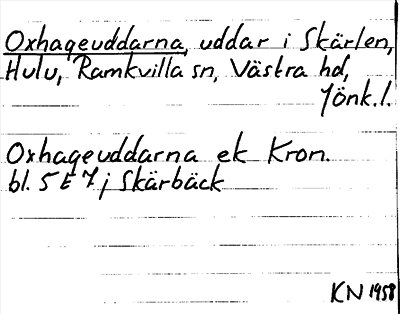 Oxhageuddarna, uddar i Skärlen,
Hulu, Ramkvilla sn, Västra hd,
Jönk.l.
Oxhageuddarna ek Kron.
bl. 5 E 7 j Skärbäck
KN 1958